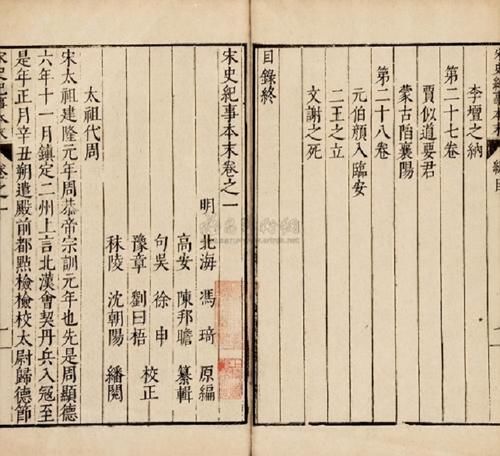 李璮之納
第二十七卷
賈似道要君
蒙古陷襄陽
第二十八卷
元伯顏入臨安
二王之立
文謝之死
目錄終
宋史紀事本末卷之一
明 北海 馮琦 原編
高安 陳邦瞻 纂輯
句吳 徐申
豫章 劉曰梧 校正
秣陵 沈朝陽 繙閱
太祖代周
宋太祖建隆元年周恭帝宗訓元年也先是周顯德
六年十一月鎮定二州上言北漢會契丹兵入寇至
是年正月辛丑朔遣殿前都點檢檢校太尉歸德節
宋史紀事本末 卷之一